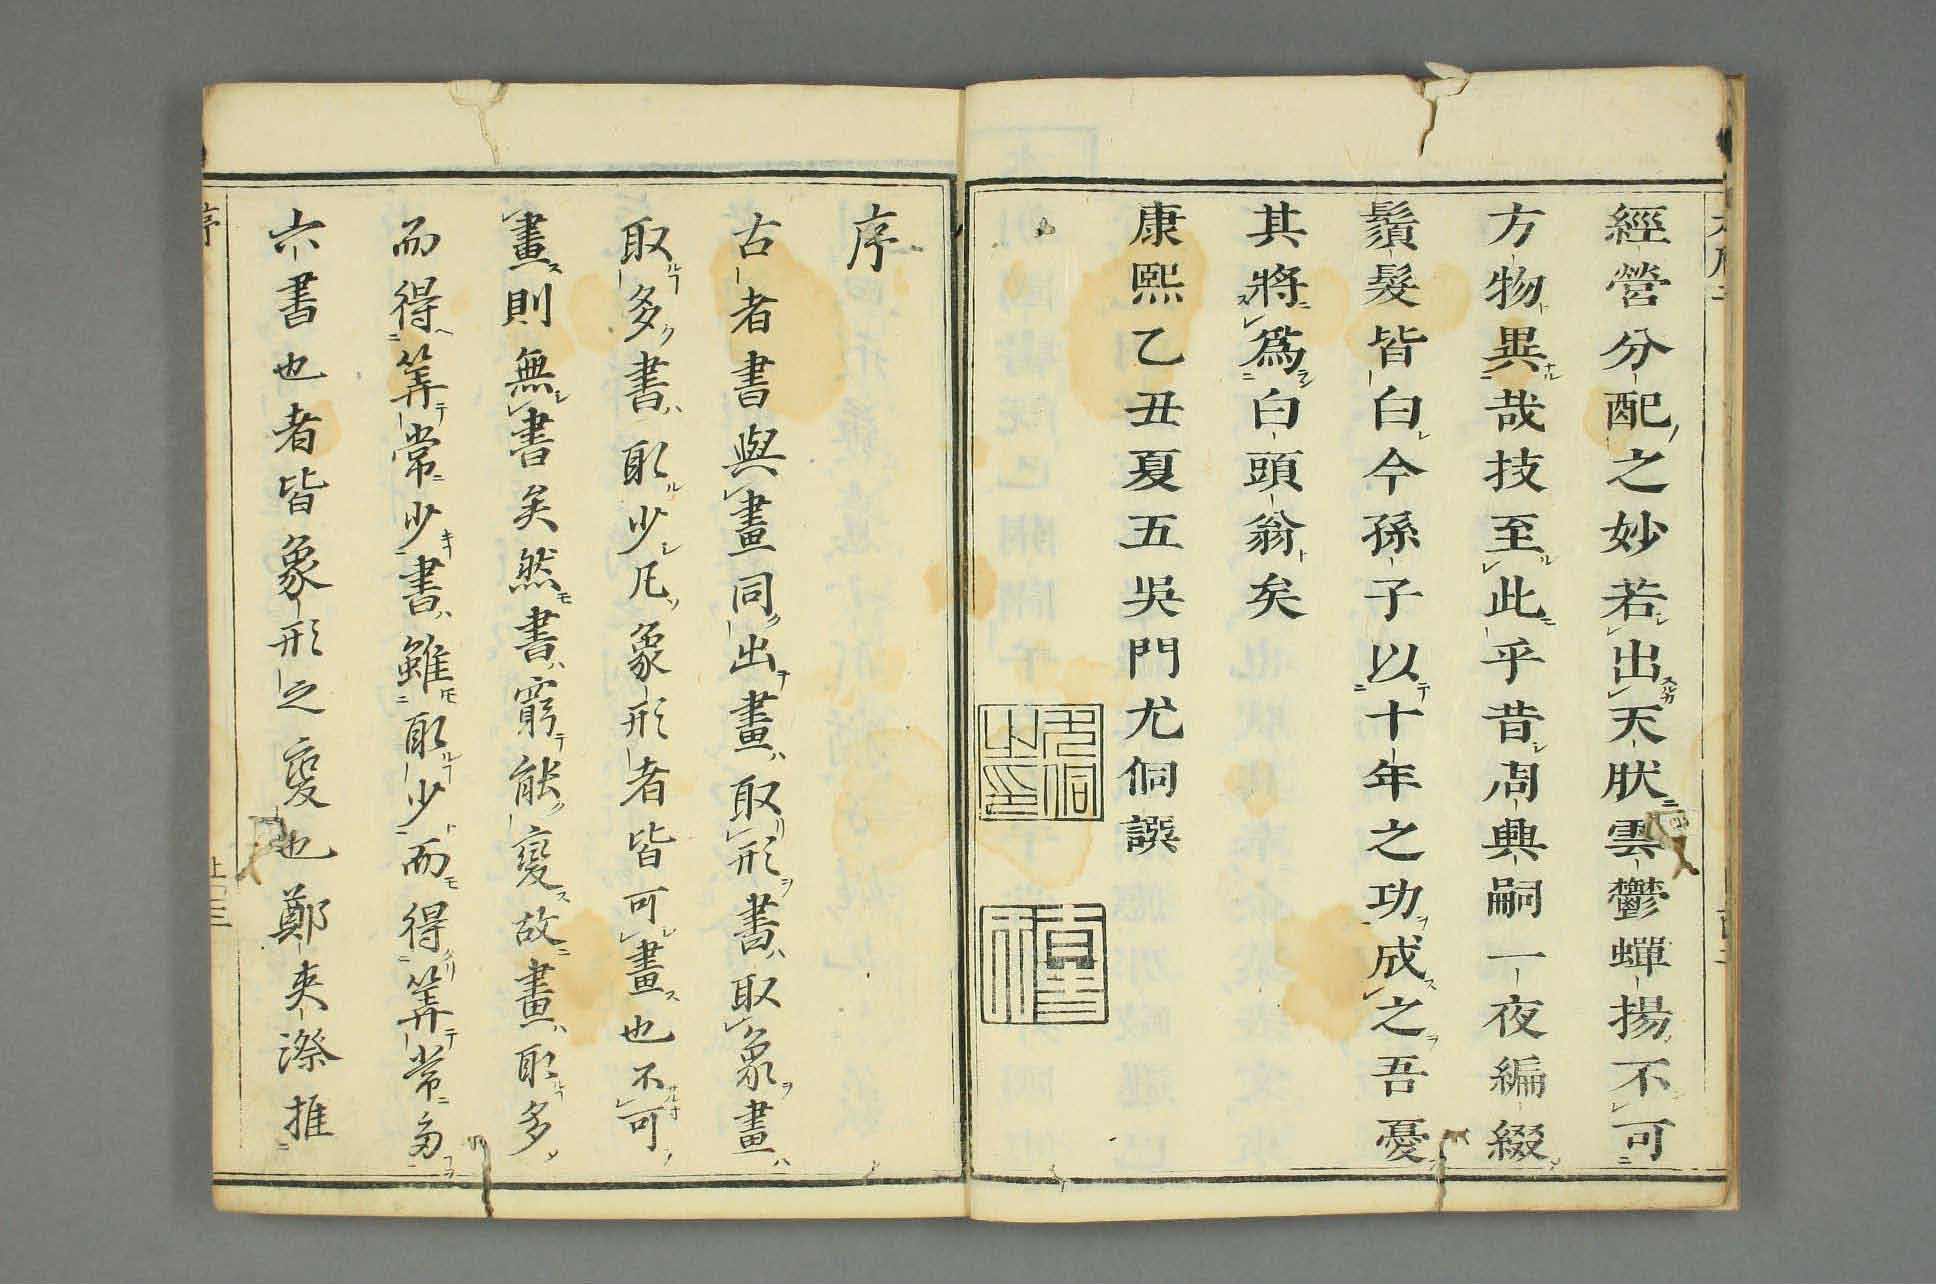 經營分配之妙若出天狀雲鬱蟬揚不可
方物異哉技至此乎昔周興嗣一夜編綴
鬚髮皆白今孫子以十年之功成之吾憂
其將爲白頭翁矣
康熙乙丑夏五吳門尤侗譔
尤侗之印
序
古者書與畫同出畫取形書取象畫
取多書取少凡象形者皆可畫也不可
畫則無書矣然書窮能變故畫取多
而得筭常少書雖取少而得筭常多
六書也者皆象形之變也鄭夾漈推
序